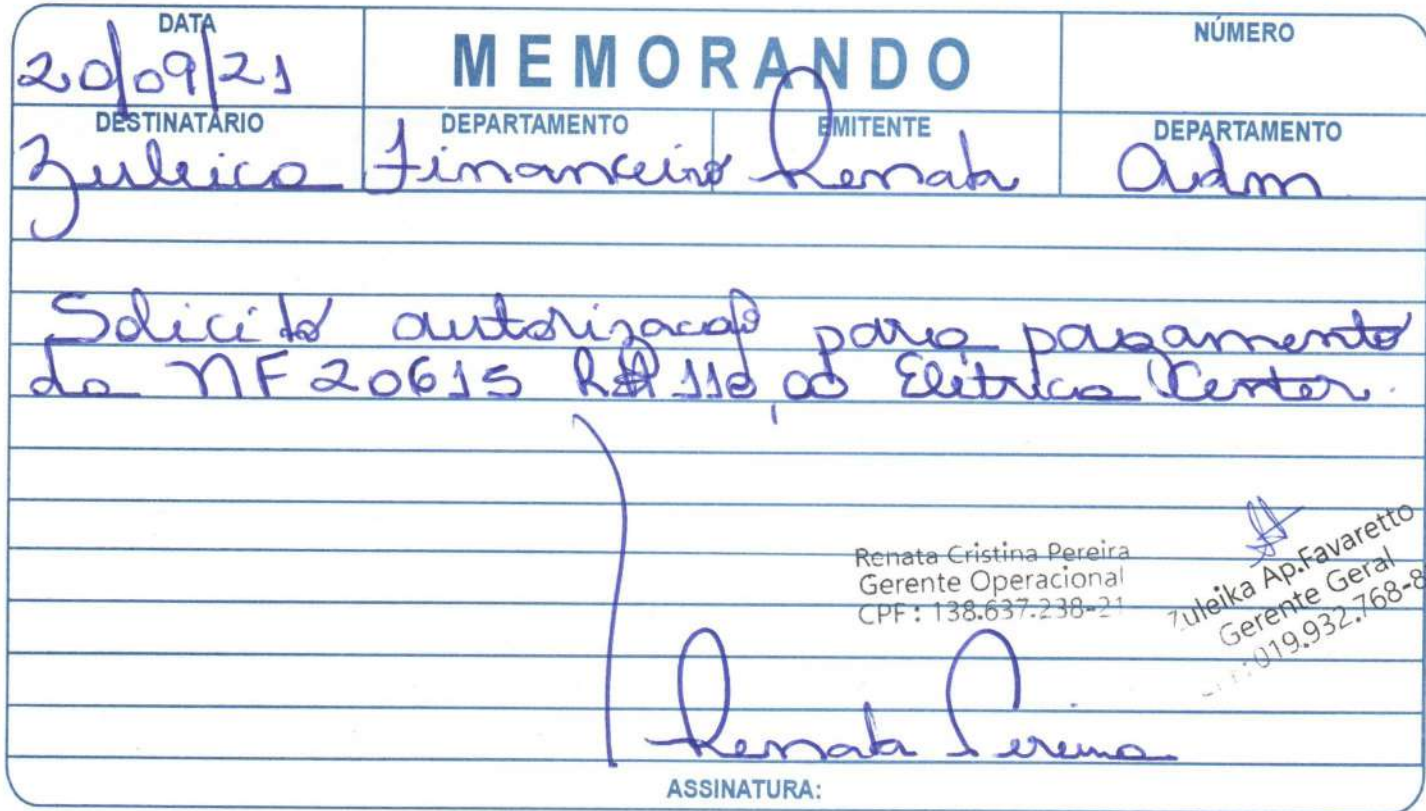 DATA
20/09/21
MEMORANDO
NÚMERO
DESTINATÁRIO
Zuleica
DEPARTAMENTO
Financeiro
EMITENTE
Renata
DEPARTAMENTO
Adm
Solicito autorizacao para pagamento
da NF 20615 R$ 110,00 Elitrica Center.
Renata Cristina Pereira
Gerente Operacional
CPF: 138.637.238-21
Zuleika Ap.Favaretto
Gerente Geral
019.932.768-8
Renata Pereira
ASSINATURA: